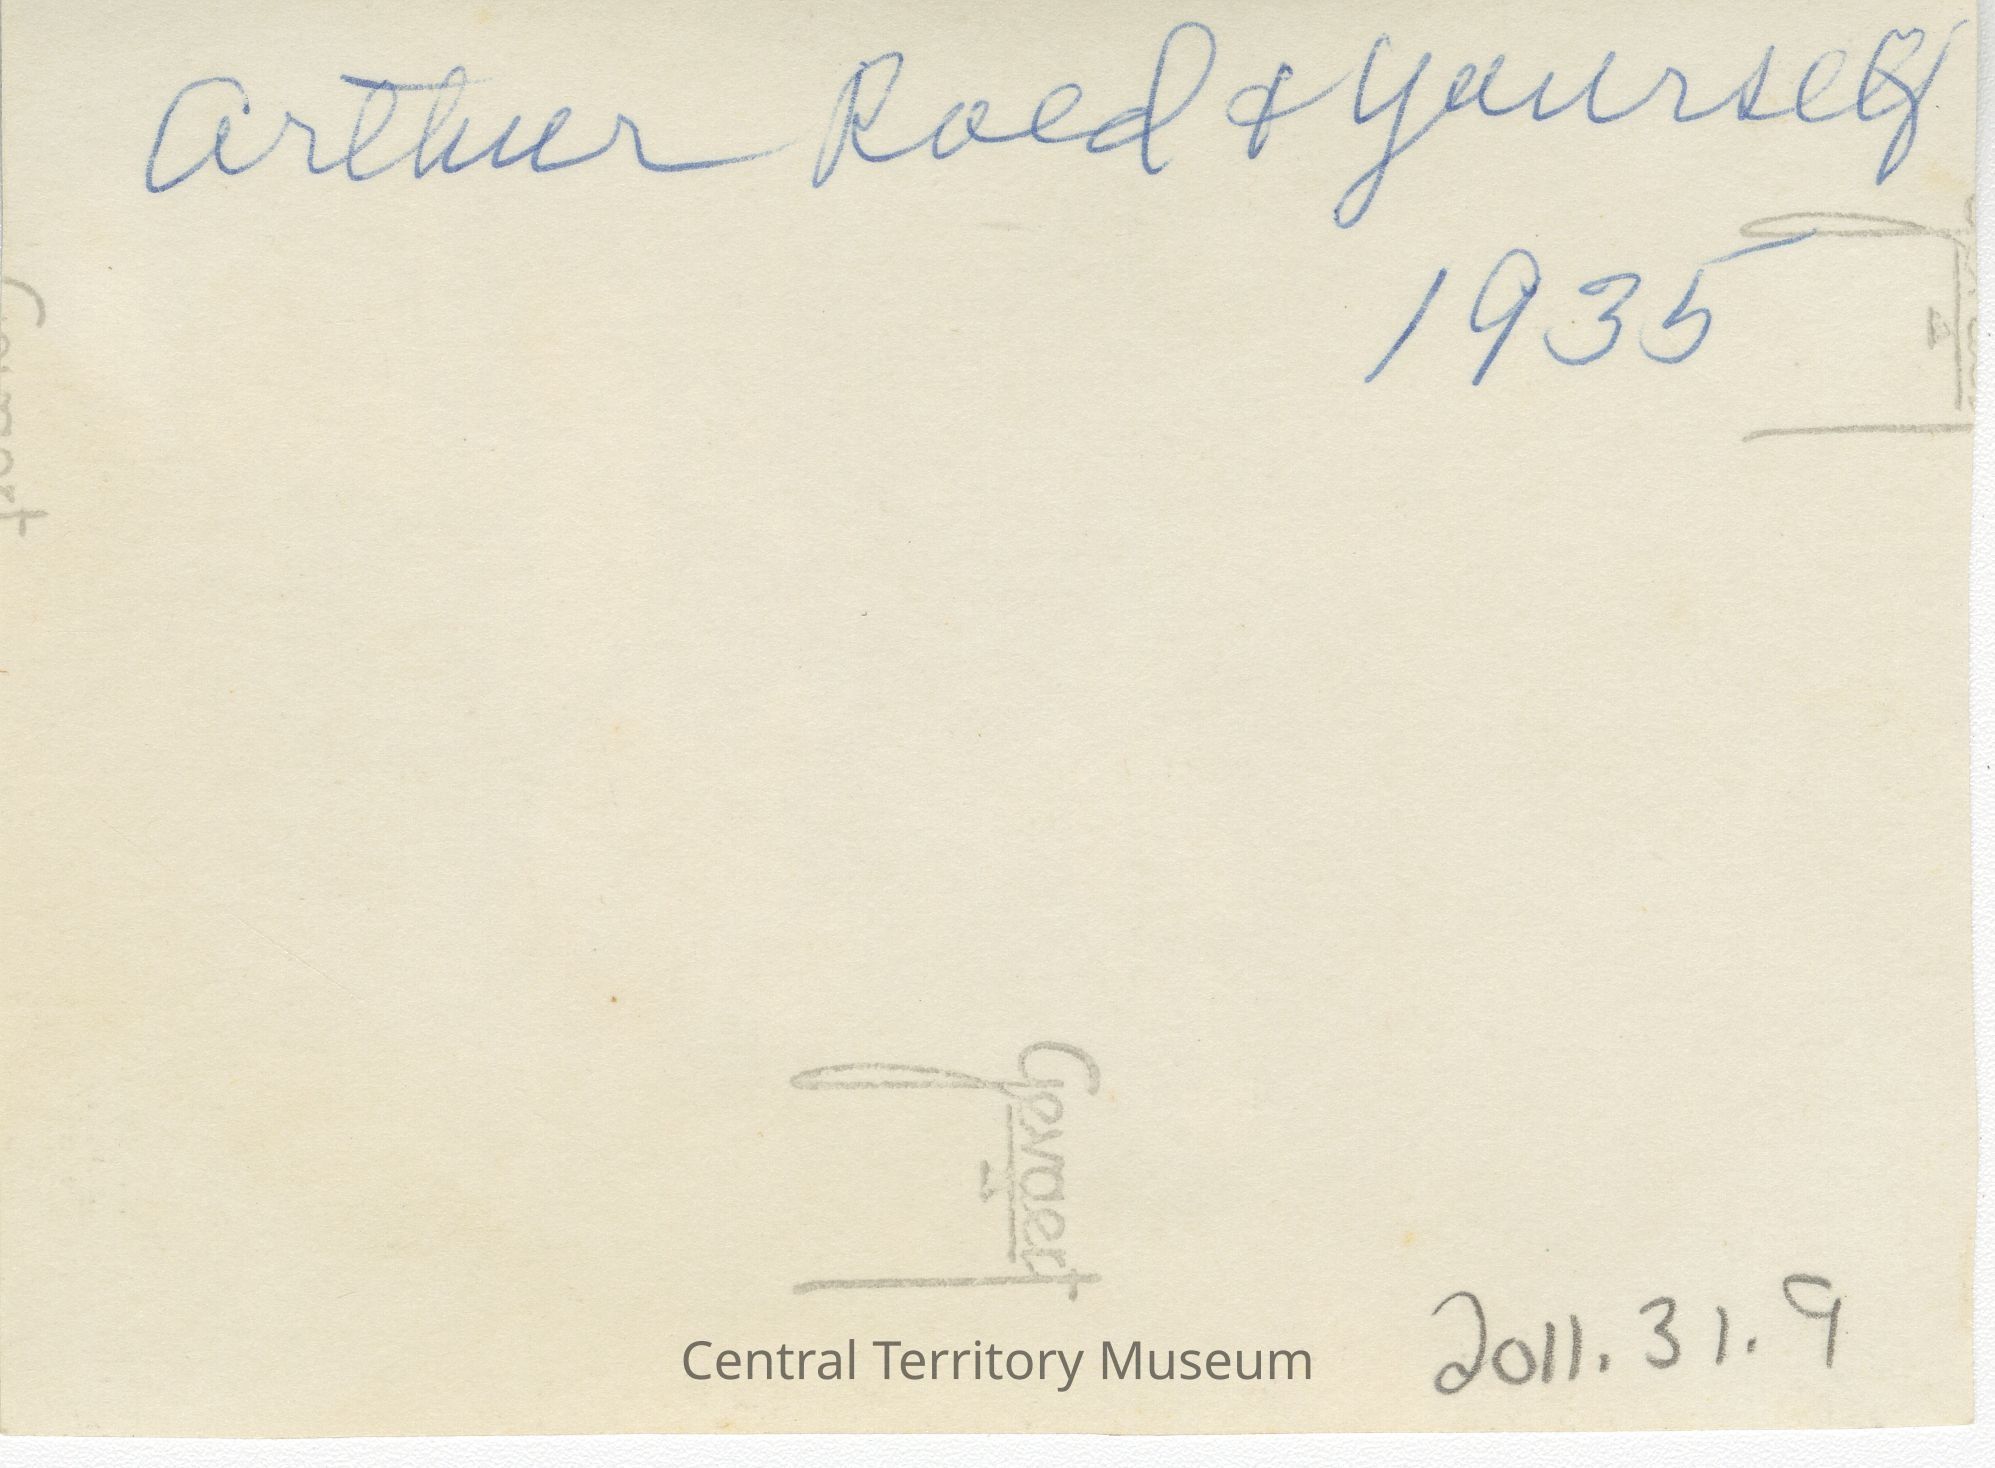 Arthur Roed & Yourself
1935
Gevaert
Gevaert
Central Territory Museum
2011.31.9